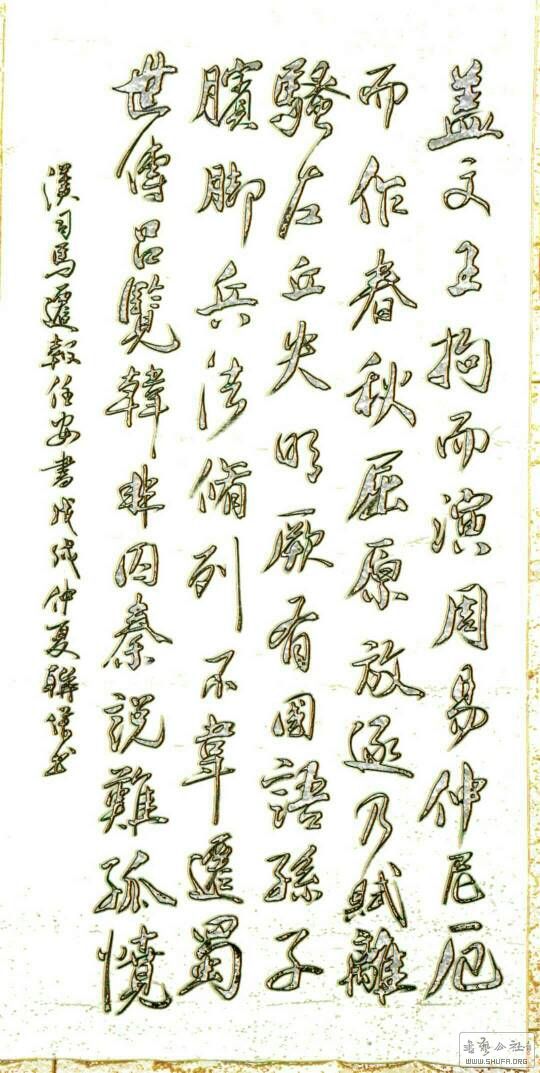 盖文王拘而演周易仲尼厄
而作春秋屈原放逐乃賦離
騷左丘失明厥有國語孫子
臏脚兵法脩列不韋遷蜀
世傳呂覽韓非囚秦說難孤憤
漢司馬遷報任安書戊戌仲夏聯漢书
WWW.SHUFA.ORG